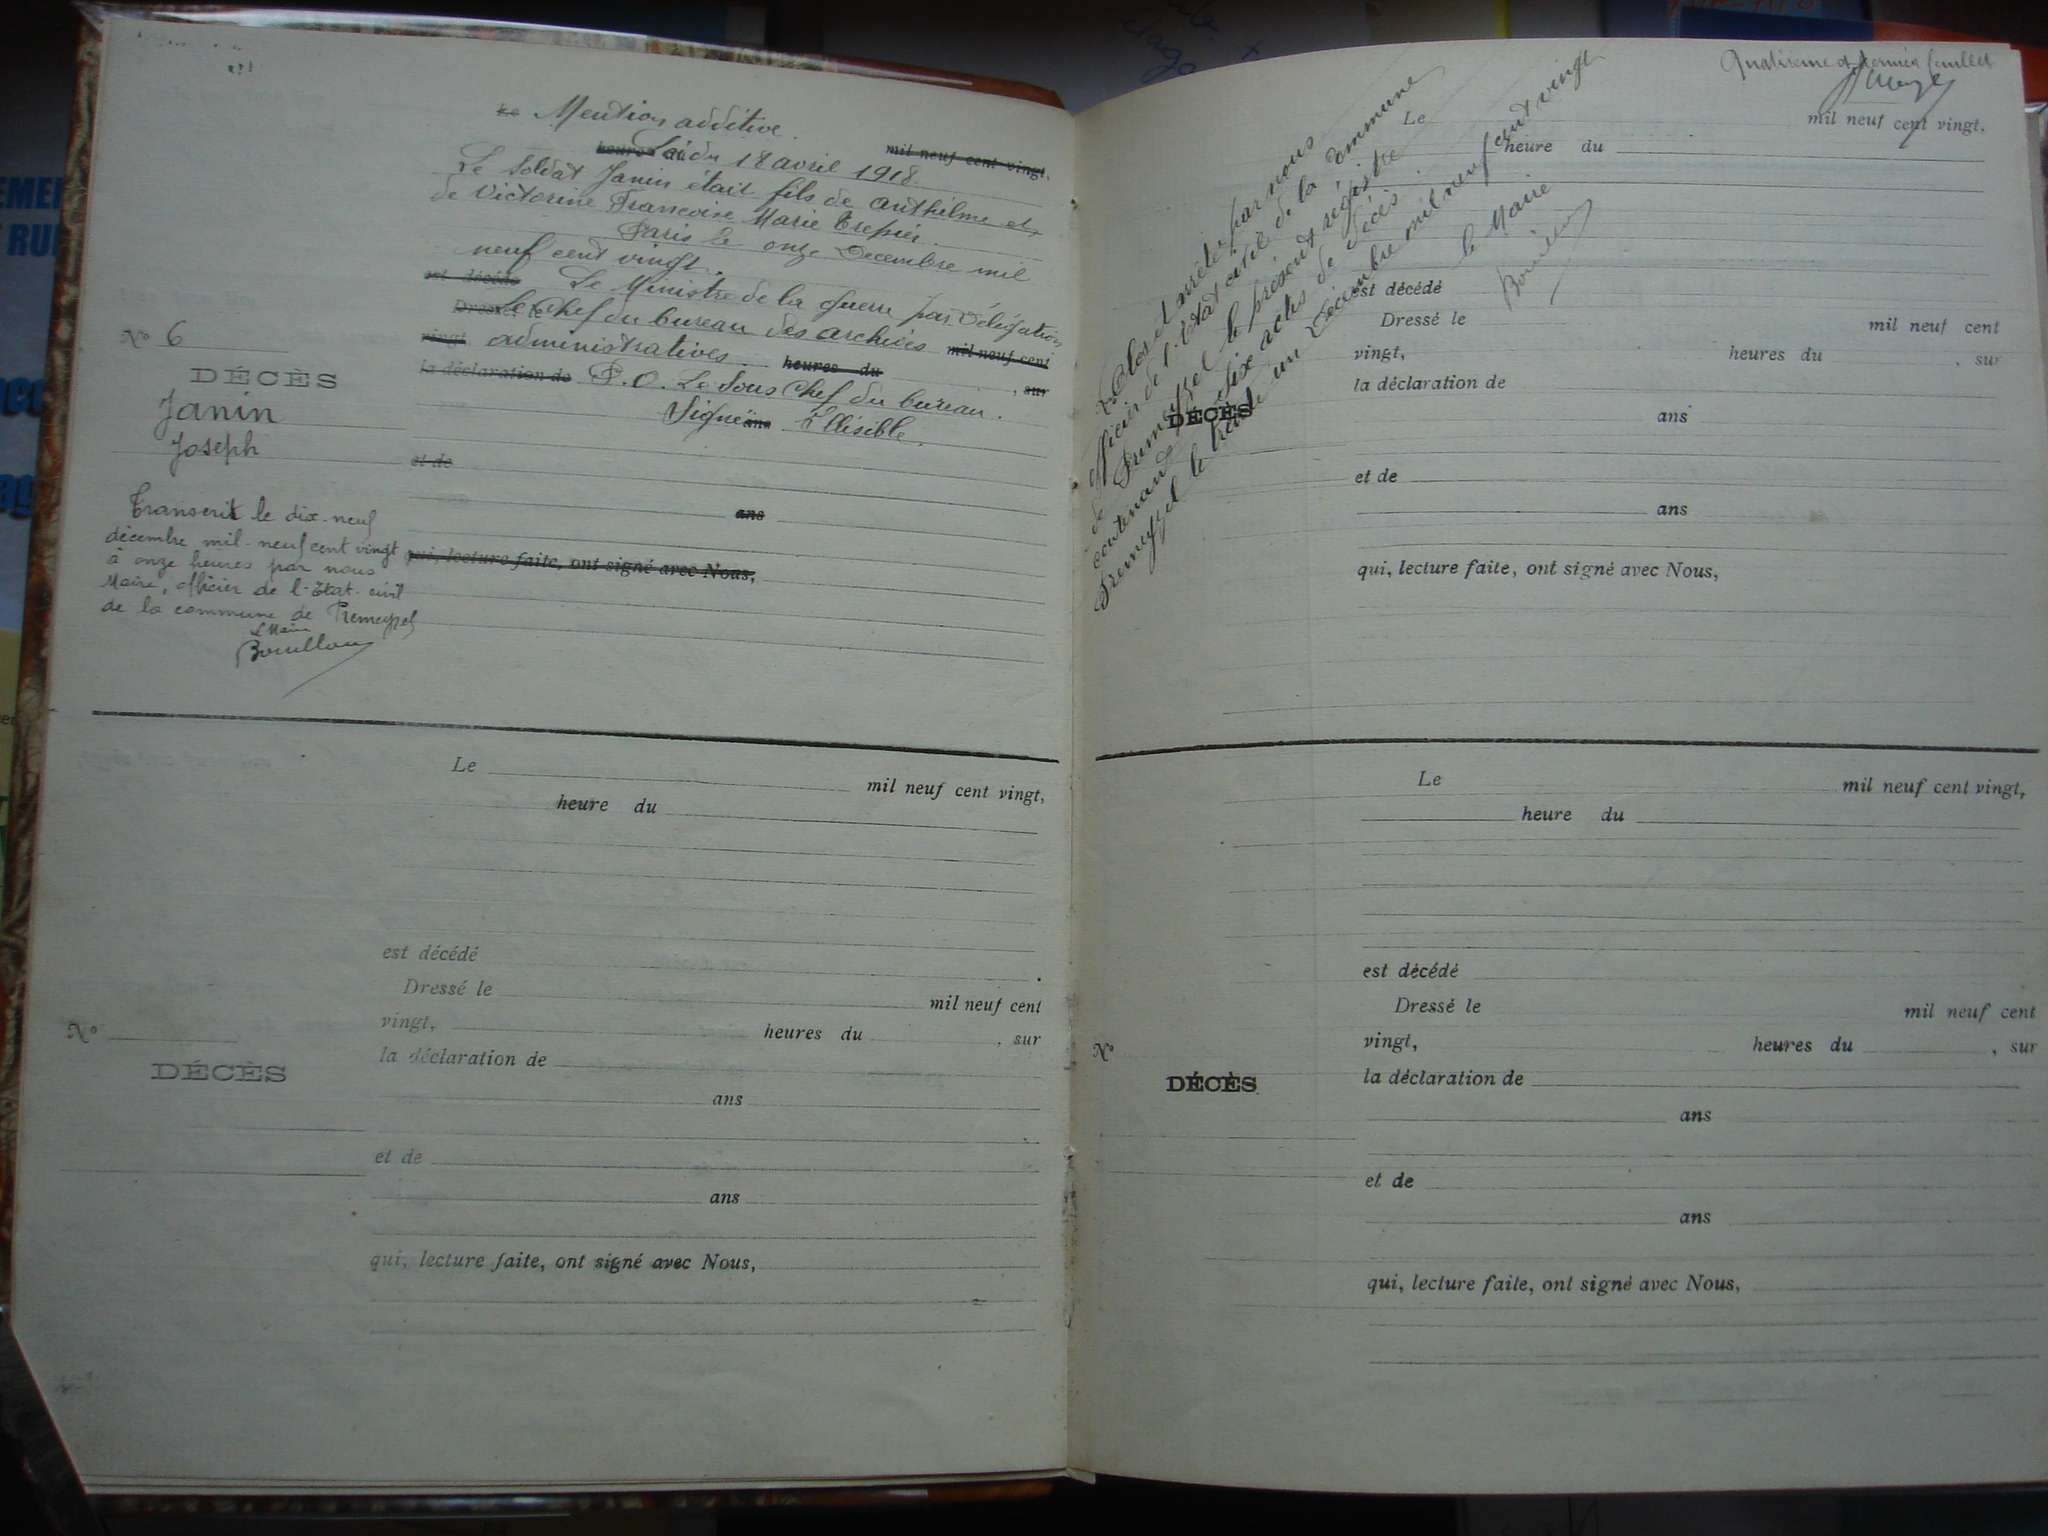 Mention additive.
Loi du 18 avril 1918.
mil neuf cent vingt.
Le Soldat Janin était fils de Anthelme et
de Victorine Françoise Marie Trepier.
Paris le onze Décembre mil
neuf cent vingt.
est décédé Le Ministre de la Guerre par Délégation
Dressé le Le Chef du bureau des archives mil neuf cent
vingt administratives. heures du , sur
la déclaration de P.O. Le Sous Chef du bureau.
Signé ans Illisible.
et de
ans
qui, lecture faite, ont signé avec Nous,
No 6
DÉCÈS
Janin
Joseph
Transcrit le dix-neuf
décembre mil-neuf cent vingt
à onze heures par nous
Maire, officier de l'Etat-civil
de la commune de Premeyzel
Le Maire
Bouillon
Le mil neuf cent vingt,
heure du
est décédé
Dressé le mil neuf cent
vingt, heures du , sur
No
la déclaration de
DÉCÈS
ans
et de
ans
qui, lecture faite, ont signé avec Nous,
Quatrième et dernier feuillet
Le mil neuf cent vingt.
heure du
Clos et arrêté par nous
officier de l'état civil de la commune
de Premeyzel le présent registre
contenant six actes de décès.
Premeyzel le trente un Décembre mil neuf cent vingt
le Maire
Bouillon
est décédé
Dressé le mil neuf cent
vingt, heures du , sur
la déclaration de
DÉCÈS
ans
et de
ans
qui, lecture faite, ont signé avec Nous,
Le mil neuf cent vingt,
heure du
est décédé
Dressé le mil neuf cent
vingt, heures du , sur
No
la déclaration de
DÉCÈS
ans
et de
ans
qui, lecture faite, ont signé avec Nous,